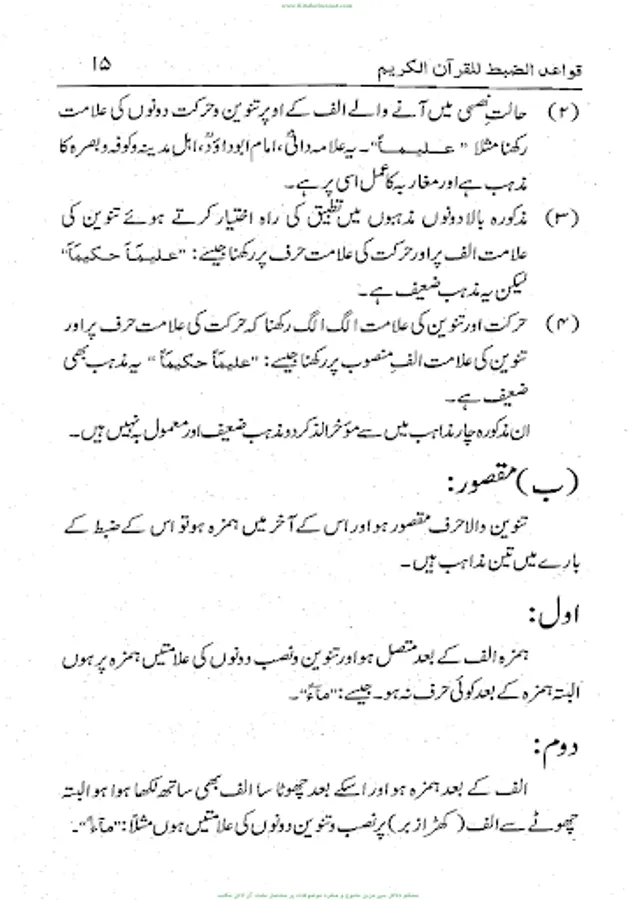 قواعد الضبط للقرآن الكریم ۱۵
(۲) حالتِ نصبی میں آنے والے الف کے اوپر تنوین و حرکت دونوں کی علامت
رکھنا مثلا " علیماً"۔ یہ علامہ دانیؒ، امام ابوداؤدؒ، اہل مدینہ و کوفہ و بصرہ کا
مذہب ہے اور مغاربہ کا عمل اسی پر ہے۔
(۳) مذکورہ بالا دونوں مذہبوں میں تطبیق کی راہ اختیار کرتے ہوئے تنوین کی
علامت الف پر اور حرکت کی علامت حرف پر رکھنا جیسے: "علیمَاً حکیمَاً"
لیکن یہ مذہب ضعیف ہے۔
(۴) حرکت اور تنوین کی علامت الگ الگ رکھنا کہ حرکت کی علامت حرف پر اور
تنوین کی علامت الفِ منصوب پر رکھنا جیسے: "علیمَاً حکیمَاً" یہ مذہب بھی
ضعیف ہے۔
ان مذکورہ چار مذاہب میں سے مؤخر الذکر دو مذہب ضعیف اور معمول بہ نہیں ہیں۔
(ب) مقصور:
تنوین والا حرف مقصور ہو اور اس کے آخر میں ہمزہ ہو تو اس کے ضبط کے
بارے میں تین مذاہب ہیں۔
اول:
ہمزہ الف کے بعد متصل ہو اور تنوین و نصب دونوں کی علامتیں ہمزہ پر ہوں
البتہ ہمزہ کے بعد کوئی حرف نہ ہو۔ جیسے: "مآءً"۔
دوم:
الف کے بعد ہمزہ ہو اور اسکے بعد چھوٹا سا الف بھی ساتھ لکھا ہوا ہو البتہ
چھوٹے سے الف (کھڑا زبر) پر نصب و تنوین دونوں کی علامتیں ہوں مثلاً: "مآءً"۔